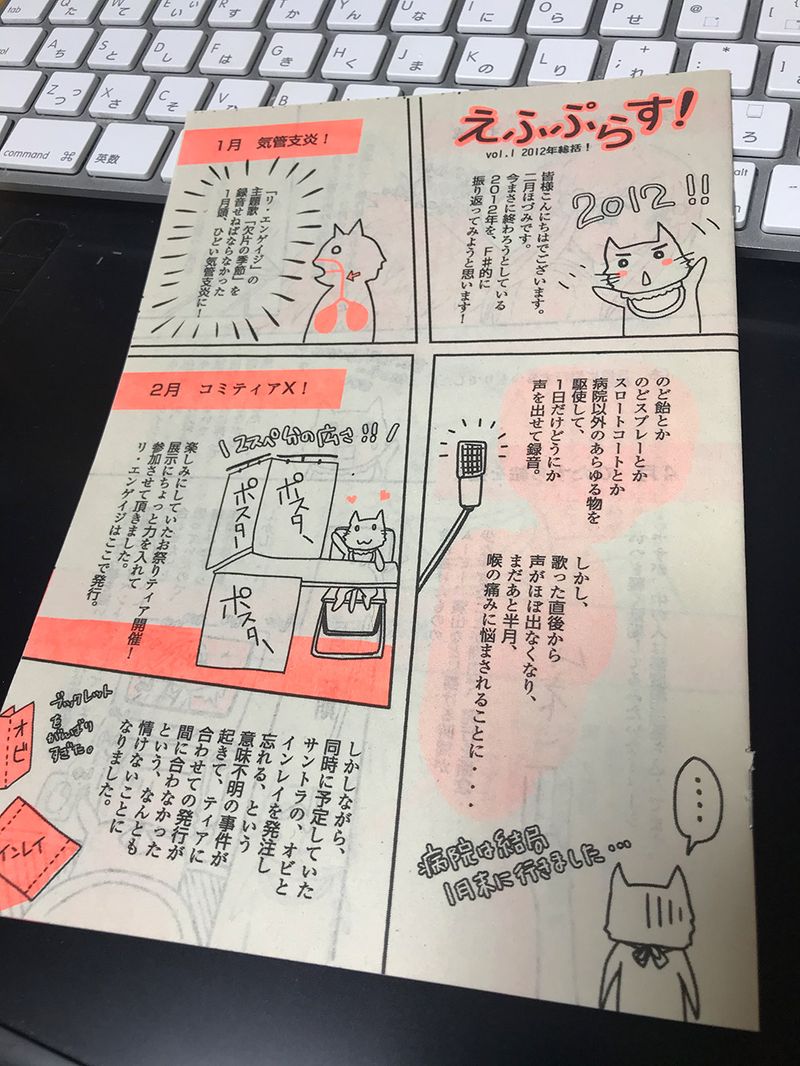 えふぷらす!
vol.1 2012年総括!
皆様こんにちはでございます。
二月ほづみです。
今まさに終わろうとしている
2012年を、F#的に
振り返ってみようと思います!
2012!!
1月 気管支炎!
『リ・エンゲイジ』の
主題歌「欠片の季節」を
録音せねばならなかった
1月頭、ひどい気管支炎に!
のど飴とか
のどスプレーとか
スロートコートとか
病院以外のあらゆる物を
駆使して、
1日だけどうにか
声を出せて録音。
しかし、
歌った直後から
声がほぼ出なくなり、
まだあと半月、
喉の痛みに悩まされることに・・・・
病院は結局
1月末に行きました…
2月 コミティアX!
2スペ分の広さ!!
ポスター
ポスター
ポスター
楽しみにしていたお祭りティア開催!
展示にちょっと力を入れて
参加させて頂きました。
リ・エンゲイジはここで発行。
しかしながら、
同時に予定していた
サントラの、オビと
インレイを発注し
忘れる、という
意味不明の事件が
起きて、ティアに
合わせての発行が
間に合わなかった
という、なんとも
情けないことに
なりました。
ブックレット
を
がんばり
すぎた。
オビ
インレイ
tab
Q た
W て
E い
R す
T か
Y ん
U な
I に
O ら
P せ
@
A ち
S と
D し
F は
G き
H く
J ま
K の
L り
+
; れ
*
:
Z つ
X さ
C そ
V ひ
ろ
command ⌘
英数
alt